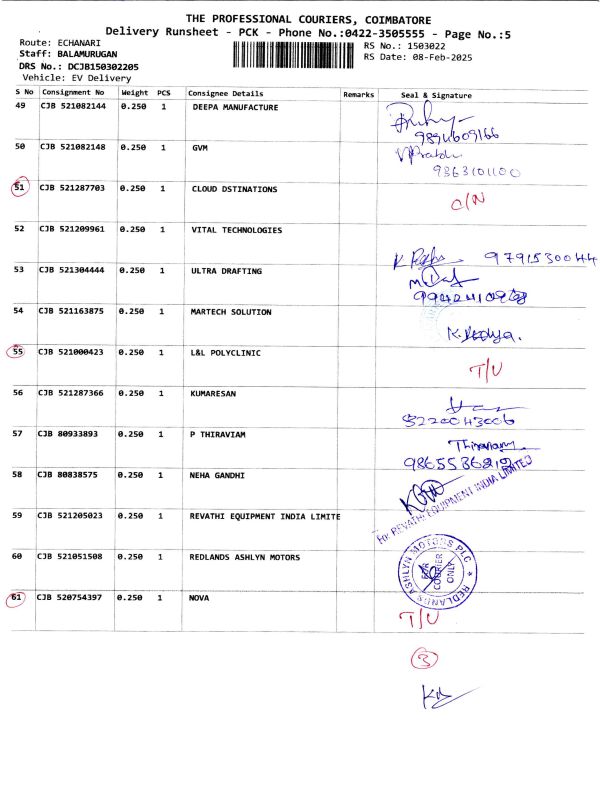 THE PROFESSIONAL COURIERS, COIMBATORE
Delivery Runsheet - PCK - Phone No.:0422-3505555 - Page No.:5
Route: ECHANARI
RS No.: 1503022
Staff: BALAMURUGAN
RS Date: 08-Feb-2025
DRS No.: DCJB150302205
Vehicle: EV Delivery
S No Consignment No Weight PCS Consignee Details Remarks Seal & Signature
49 CJB 521082144 0.250 1 DEEPA MANUFACTURE
9894609166
50 CJB 521082148 0.250 1 GVM
VPrabhu
9863101100
51 CJB 521287703 0.250 1 CLOUD DSTINATIONS
O/N
52 CJB 521209961 0.250 1 VITAL TECHNOLOGIES
K 9791530044
53 CJB 521304444 0.250 1 ULTRA DRAFTING
54 CJB 521163875 0.250 1 MARTECH SOLUTION
55 CJB 521000423 0.250 1 L&L POLYCLINIC
T/U
56 CJB 521287366 0.250 1 KUMARESAN
8220043006
57 CJB 80933893 0.250 1 P THIRAVIAM
Thiraviam
9865536212
58 CJB 80838575 0.250 1 NEHA GANDHI
59 CJB 521205023 0.250 1 REVATHI EQUIPMENT INDIA LIMITE
For REVATHI EQUIPMENT INDIA LIMITED
60 CJB 521051508 0.250 1 REDLANDS ASHLYN MOTORS
REDLANDS ASHLYN MOTORS PLC
FOR COURIER ONLY
61 CJB 520754397 0.250 1 NOVA
T/U
3